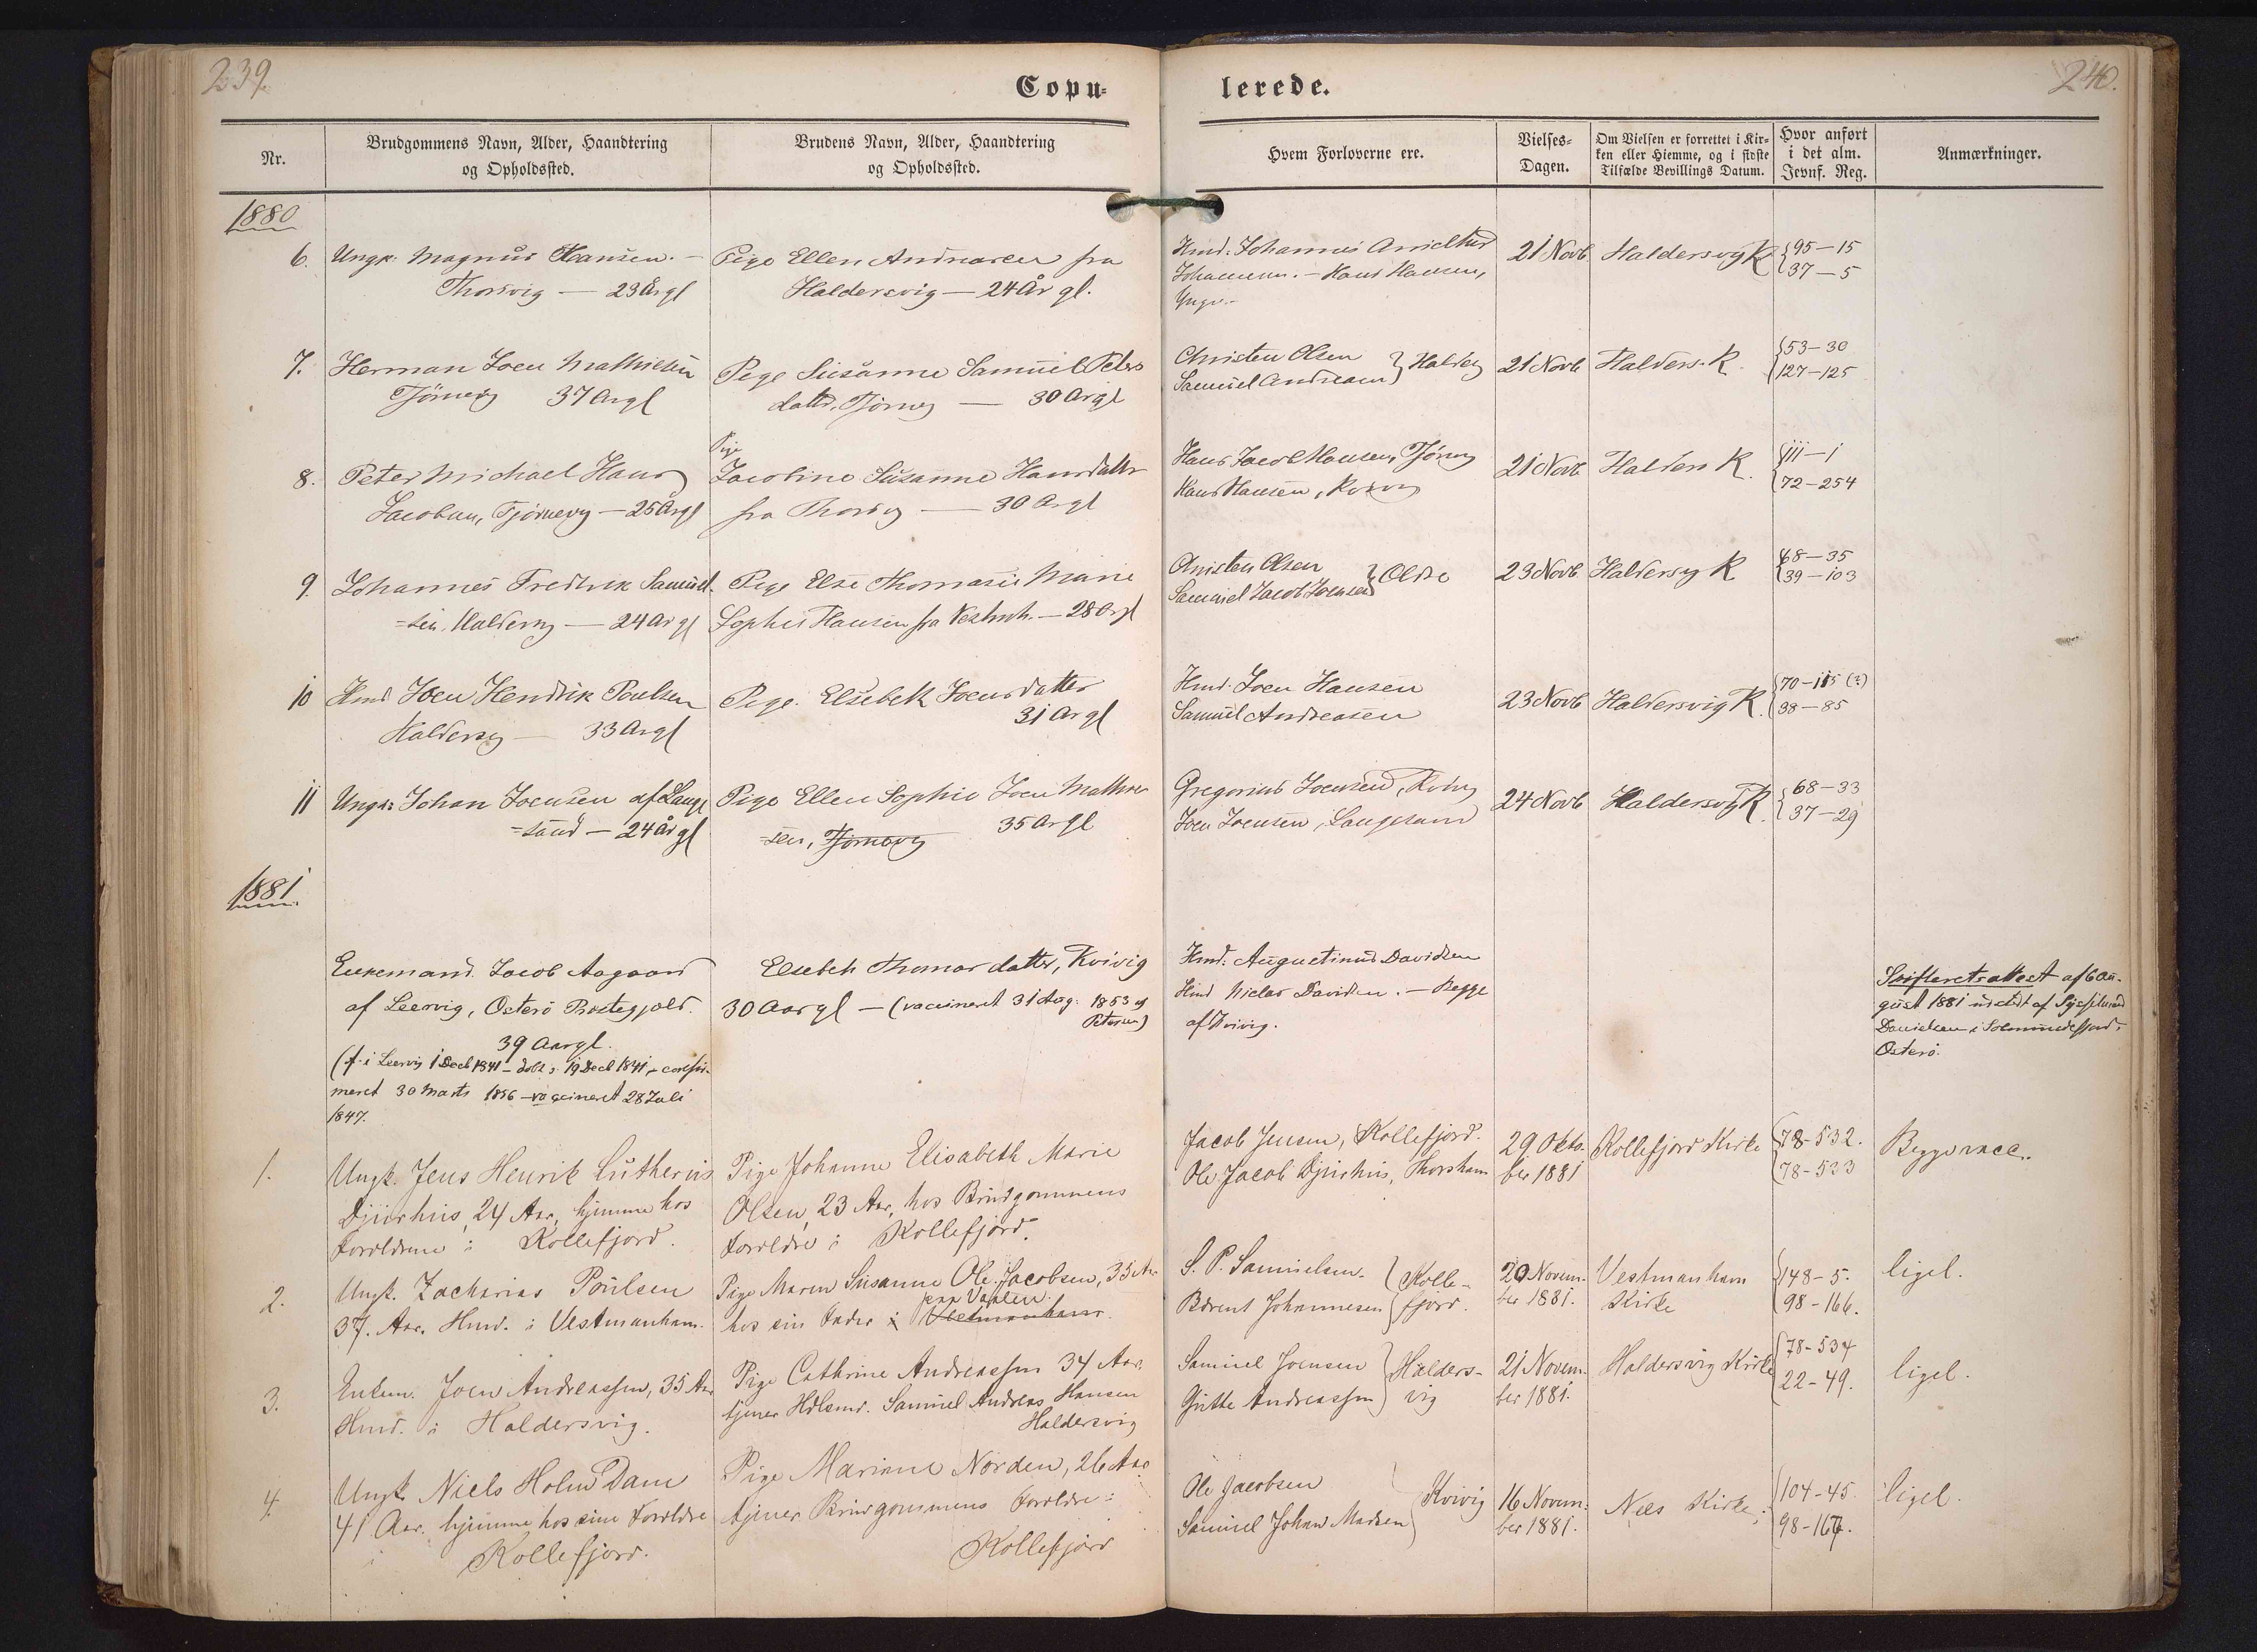 239.
Copu=
lerede.
240.
Nr.
Brudgommens Navn, Alder, Haandtering
og Opholdssted.
Brudens Navn, Alder, Haandtering
og Opholdssted.
Hvem Forloverne ere.
Vielses=
Dagen.
Om Vielsen er forrettet i Kir=
ken eller Hiemme, og i sidste
Tilfælde Bevillings Datum.
Hvor anført
i det alm.
Jevnf. Reg.
Anmærkninger.
1880
6.
Ungk: Magnus Hansen. –
Thorsvig — 23 år gl
Pige Ellen Andreasen fra
Haldersvig — 24 År gl.
Hmd: Johannes
Johannesen. – Hans Hansen,
21 Novb
Haldersvig K
95–15
37–5
7.
Herman Joen Mathiesen
Tjørnevig 37 År gl
Pige Susanne Samuel Peters
datter, Tjørnevg — 30 År gl
Christen Olsen
Samuel Andreasen } Haldersvg
21 Novb
Halders. K.
53–30
127–125
8.
Peter Michael Hans
Jacobsen, Tjørnevg — 25 År gl
Pige
Jacobine Susanne Hansdatter
fra Thorsvg — 30 År gl
Hans Jacob Hansen, Tjørnvg
Hans Hansen,
21 Novb
Halders K.
111–1
72–254
9.
Johannes Fredrik Samuel-
=sen, Haldersvg — 24 År gl
Pige Else Thomasie Marie
Sophie Hansen fra Vestmh. — 28 År gl
Christen Olsen
Samuel Jacob Joensen
23 Novb
Haldersvg K
68–35
39–103
10
Hmd Joen Hendrik Poulsen
Haldersvg — 33 År gl
Pige. Elsebeth Joensdatter
31 År gl
Hmd. Joen Hansen
Samuel Andreasen
23 Novb
Haldersvig K.
70–115 (?)
38–85
11
Ungk: Johan Joensen af Lange
=sand — 24 år gl
Pige Ellen Sophie Joen Mathie
=sen, Tjørnevg 35 År gl
Gregorius Joensen, Kvivg
Joen Joensen, Langesand
24 Novb
Haldersvg K.
68–33
37–29
1881.
Enkemand. Jacob Aagaard
af Leervig, Østerø Præstegjæld.
39 Aar gl.
(f. i Leervig 1 Decb 1841 – døbt s. 19 Decb 1841 – confir-
meret 30 Marts 1856 – vaccineret 28 Juli
1847.
Elsebeth Thomasdatter, Kvivig
30 Aar gl — (vaccineret 31 Aug. 1853 af
Petersen)
Hmd: Augustinus Davidsen
Hmd Niclas Davidsen. – Begge
af Kvivig.
Skifteretsattest af 6 Au-
gust 1881 udstedt af Sysselmand
Danielsen i Solmundefjord,
Østerø.
1.
Ungk. Jens Henrik Lutherus
Djurhus, 24 Aar, hjemme hos
Forældrene i Kollefjord.
Pige Johanne Elisabeth Marie
Olsen, 23 Aar, hos Brudgommens
Forældre i Kollefjord.
Jacob Jensen, Kollefjord.
Ole Jacob Djurhus, Thorshavn
29 Okto-
ber 1881
Kollefjord Kirke
78–532.
78–523
Begge vacc.
2.
Ungk. Zacharias Poulsen
37. Aar. Hmd. i Vestmanhavn.
Pige Maren Susanne Ole Jacobsen, 35 Aar
paa Vaalen.
hos sin Fader i Vestmanhavn.
S. P. Samuelsen.
Berent Johannesen } Kolle-
fjord.
20 Novem-
ber 1881.
Vestmanhavn
Kirke
148–5.
98–166.
ligel.
3.
Enkem. Joen Andreassen, 35 Aar
Hmd. i Haldersvig.
Pige Cathrine Andreassen 34 Aar.
tjener Hdlsmd. Samuel Andreas Hansen
Haldersvig
Samuel Joensen
Gutte Andreassen } Halders-
vig
21 Novem-
ber 1881.
Haldersvig Kirke
78–534
22–49.
ligel.
4.
Ungk. Niels Holm Dam
41 Aar. hjemme hos sine Forældre
i Kollefjord.
Pige Mariane Norden, 26 Aar
tjener Brudgommens Forældre i
Kollefjord
Ole Jacobsen
Samuel Johan Madsen } Kvivig
16 Novem-
ber 1881.
Næs Kirke.
104–45
98–167.
ligel.